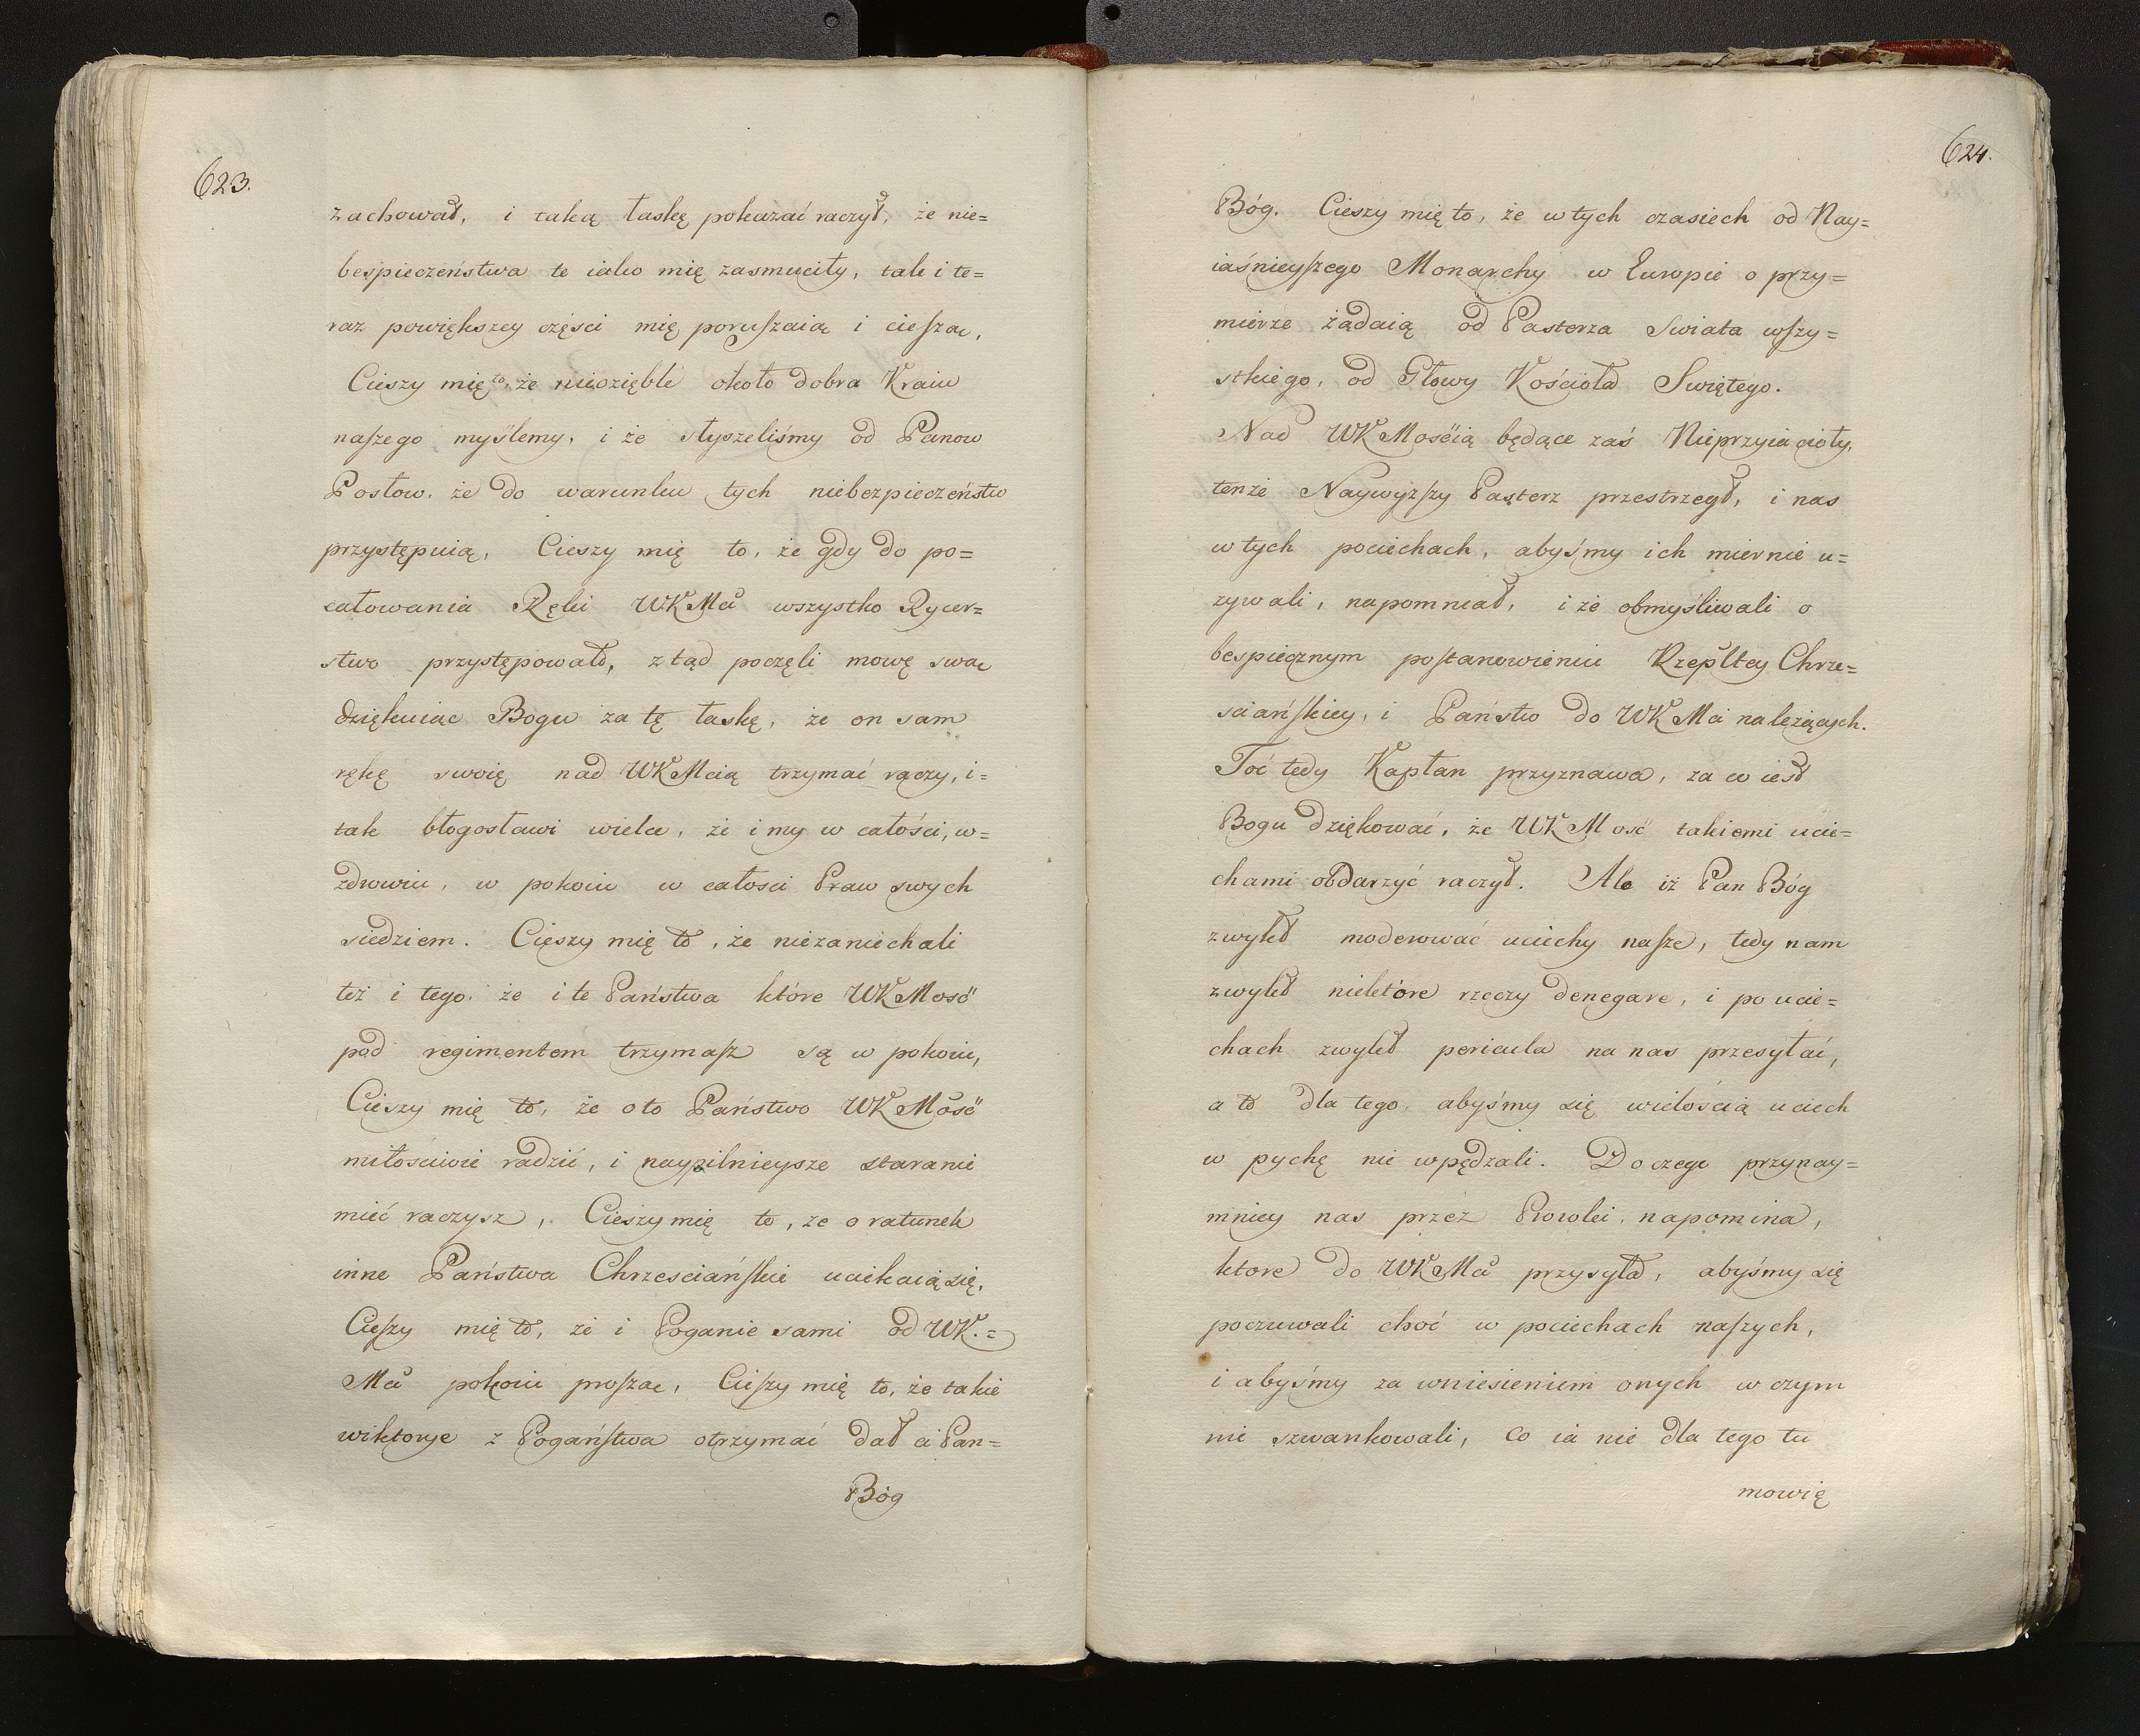 623.
zachował, i taką łaskę pokazać raczył, że nie=
bespieczeństwa te iako mię zasmuciły, tak i te=
raz powiększey części mię poruszaią i cieszą,
Cieszy mię to, że nieozięble około dobra Kraiu
naszego myślemy, i że słyszeliśmy od Panow
Posłow, że do warunku tych niebezpieczeństw
przystępuią, Cieszy mię to, że gdy do po=
całowania Ręki WKMci wszystko Rycer=
stwo przystępowało, ztąd poczęli mowę swą
dziękuiąc Bogu za tę łaskę, że on sam
rękę swoię nad WKMcią trzymać raczy, i=
tak błogosławi wiele, że i my w całości, w=
zdrowiu, w pokoiu w całosci Praw swych
siedziem. Cieszy mię to, że niezaniechali
też i tego, że i te Państwa które WKMość
pod regimentem trzymasz są w pokoiu,
Cieszy mię to, że oto Państwo WKMość
miłościwie radzić, i naypilnieysze staranie
mieć raczysz, Cieszy mię to, że o ratunek
inne Państwa Chrzesciańskie uciekaią się,
Cieszy mię to, że i Poganie sami od WK.=
Mci pokoiu proszą, Cieszy mię to, że takie
wiktorye z Pogaństwa otrzymać dał ci Pan=
Bóg
624.
Bóg. Cieszy mię to, że w tych czasiech od Nay=
iaśnieyszego Monarchy w Europie o przy=
mierze żądaią od Pasterza Swiata wszy=
stkiego, od Głowy Kościoła Swiętego.
Nad WKMością będące zaś Nieprzyiacioły,
tenże Naywyższy Pasterz przestrzegł, i nas
w tych pociechach, abyśmy ich miernie u=
zywali, napomniał, i że obmyśliwali o
bespiecznym postanowieniu Rzepltey Chrze=
sciańskiey, i Państw do WKMci należących.
Toć tedy Kapłan przyznawa, za co iest
Bogu dziękować, że WKMość takiemi ucie=
chami obdarzyć raczył. Ale iż Pan Bóg
zwykł moderować uciechy nasze, tedy nam
zwykł niektóre rzeczy denegare, i po ucie=
chach zwykł pericula na nas przesyłać,
a to dla tego, abyśmy się wielością uciech
w pychę nie wpędzali. Do czego przynay=
mniey nas przez Proroki napomina,
ktore do WKMci przysyła, abyśmy się
poczuwali choć w pociechach naszych,
i abyśmy za wniesieniem onych w czym
nie szwankowali, co ia nie dla tego tu
mowię